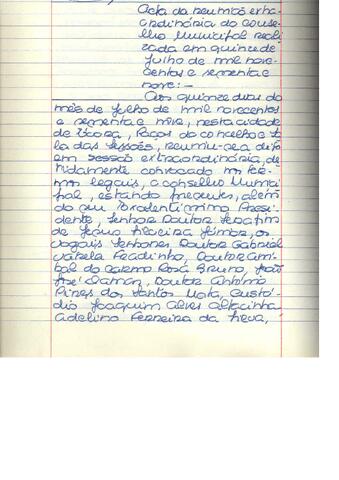 Acta da reunião extra-
ordinária do conse-
lho Municipal reali
zada em quinze de
Julho de mil nove-
centos e sessenta e
nove:-
Aos quinze dias do
mês de Julho de mil novecentos
e sessenta e nove, nesta cidade
de Évora, Paços do concelho e Sa
la das sessões, reuniu-se a dito
em sessão extraordinária, de
vidamente convocado nos ter-
mos legais, o conselho Muni
pal, estando presentes, além
do seu Excelentíssimo Presi
dente, Senhor Doutor Serafim
de Jesus Silveira Júnior, os
vogais Senhores Doutor Gabriel
Varela Fradinho, Doutor Aní
bal do Carmo Rosa Bruno, João
José Daman, Doutor António
Pires dos Santos Mata, Custó
dio Joaquim Alves Altacinha
Adelino Ferreira da Silva,